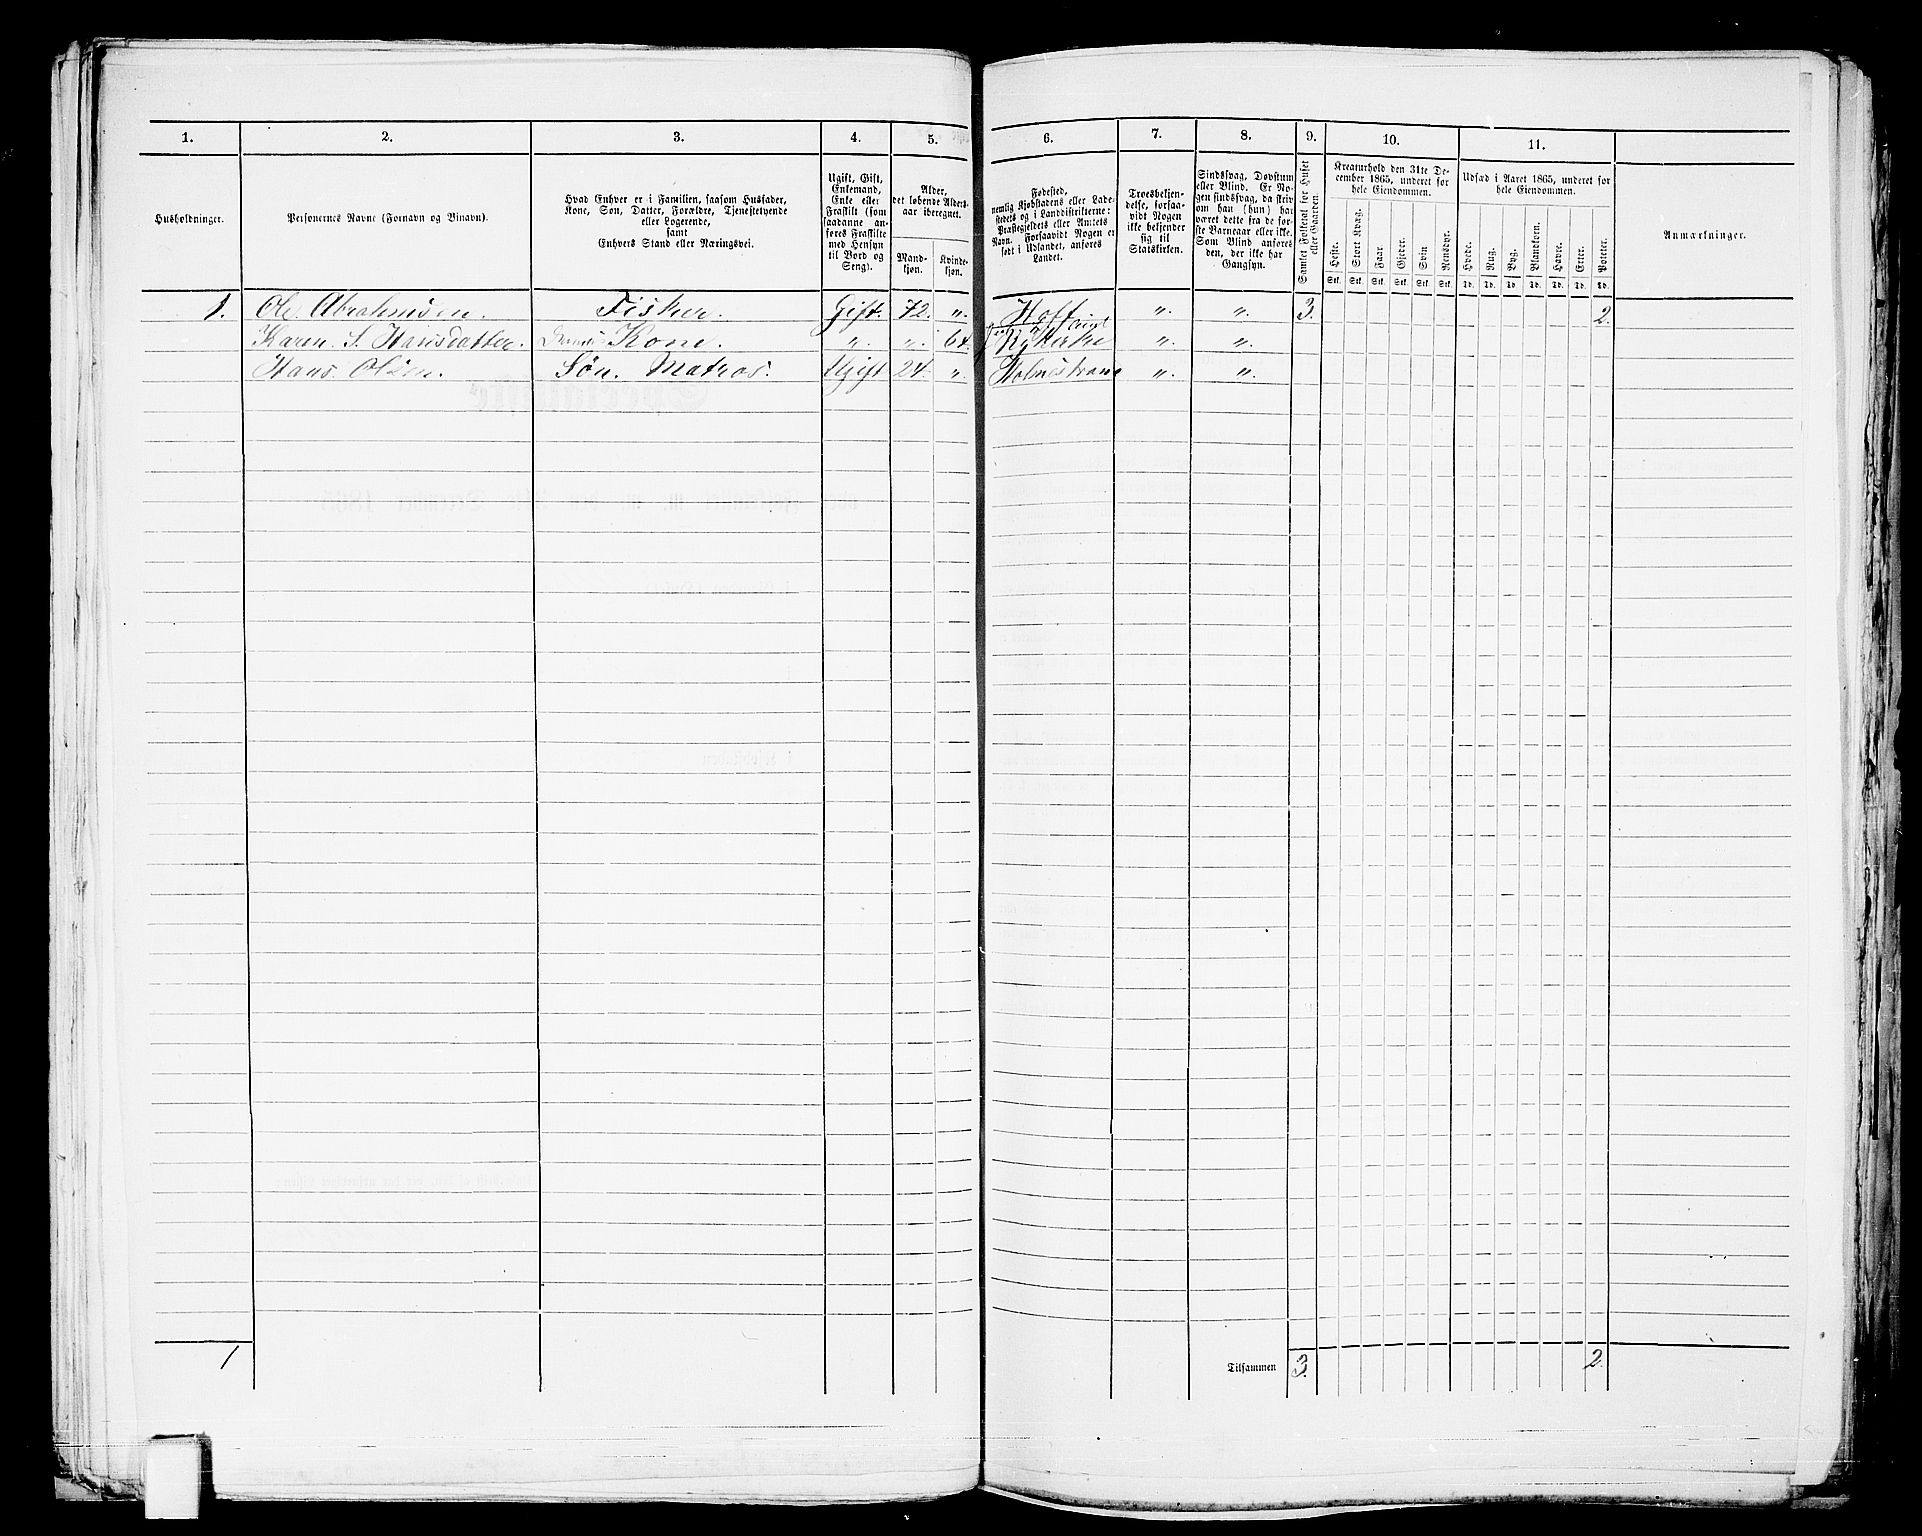 1.
2.
3.
4.
5.
6.
7.
8.
9.
10.
11.
Husholdninger.
Personernes Navne (Fornavn og Binavn).
Hvad Enhver er i Familien, saasom Husfader,
Kone, Søn, Datter, Forældre, Tjenestetyende
eller Logerende,
samt
Enhvers Stand eller Næringsvei.
Ugift, Gift,
Enkemand,
Enke eller
Fraskilt (som
saadanne an-
føres Fraskilte
med Hensyn
til Bord og
Seng).
Alder,
det løbende Alders-
aar iberegnet.
Mand-
kjøn.
Kvinde-
kjøn.
Fødested,
nemlig Kjøbstadens eller Lade-
stedets og i Landdistrikterne:
Præstegjeldets eller Amtets
Navn. Forsaavidt Nogen er
født i Udlandet, anføres
Landet.
Troesbekjen-
delse, forsaa-
vidt Nogen
ikke bekjender
sig til
Statskirken.
Sindssvag, Døvstum
eller Blind. Er No-
gen sindssvag, da skriv
om han (hun) har
været dette fra de før-
ste Barneaar eller ikke.
Som Blind anføres
den, der ikke har
Gangsyn.
Samlet Folketal for Huset
eller Gaarden.
Kreaturhold den 31te De-
cember 1865, underet for
hele Eiendommen.
Heste.
Stort Kvæg.
Faar.
Gjeder.
Svin
Rensdyr.
Stk. Stk. Stk. Stk. Stk. Stk.
Udsæd i Aaret 1865, underet for
hele Eiendommen.
Hvede.
Rug.
Byg.
Blandkorn.
Havre.
Erter.
Poteter.
Td. Td. Td. Td. Td. Td. Td.
Anmærkninger.
1. Ole Abrahamsen. Fisker. Gift. 72. " Hoff " " 3. 2.
Karen S. Hansdatter. Kone. " " 64. Nykirke " "
Hans Olsen. Søn. Matros. Ugift 24. " Holmestrand " "
1 Tilsammen 3. 2.